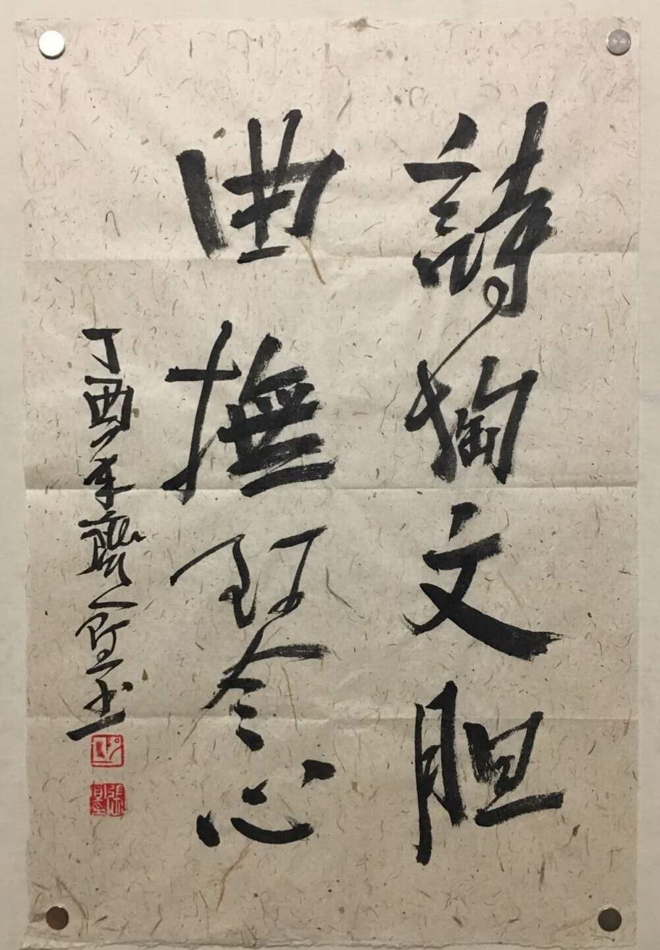 詩掏文胆
曲撫琴心
丁酉年